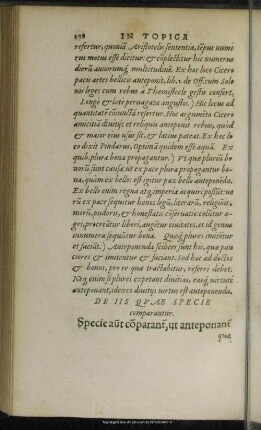 198 IN TOPICA
refertur, quoniā Aristotelis sententia, tēpus nume
rus motus esse dicitur: & cōplectitur hic numerus
dierū annorumq́; multitudinē. Ex hoc loco Cicero
pacis artes bellicis anteponit, lib. 1. de Offic. cùm Solo
nis leges cum rebus à Themistocle gestis confert.
Longè & latè peruagata angustis.) Hic locus ad
quantitatē coniuncta refertur. Huc argumēto Cicero
amicitiā diuitijs et reliquis anteponit rebus, quòd
& maior eius usus sit, & latius pateat. Ex hoc lo
co dixit Pindarus, Optimā quidem esse aquā. Ex
quib. plura bona propagantur.) Vt quæ plurium bo
norū sunt causa: ut ex pace plura propagantur bo
na, quàm ex bello: est igitur pax bello anteponēda.
Ex bello enim regna atq́; imperia acquiri possūt: ue
rū ex pace sequitur honos legū, literarū, religionis,
morū, pudoris, & honestatis cōseruatio: colūtur a-
gri: procreātur liberi, augētur ciuitates, et id genus
innumera sequūtur bona. Quæq́; plures imitētur
et faciāt.) Anteponenda scilicet sunt his, quæ pau
ciores & imitentur & faciant. Sed hoc ad doctos
& bonos, pro re qua tractabitur, referri debet.
Neq́; enim si plures expetant diuitias, easq́; uirtuti
anteponant, idcirco diuitijs uirtus est anteponenda.
DE IIS QVAE SPECIE
comparantur.
Specie aūt cōparanť, ut anteponanť
quæ